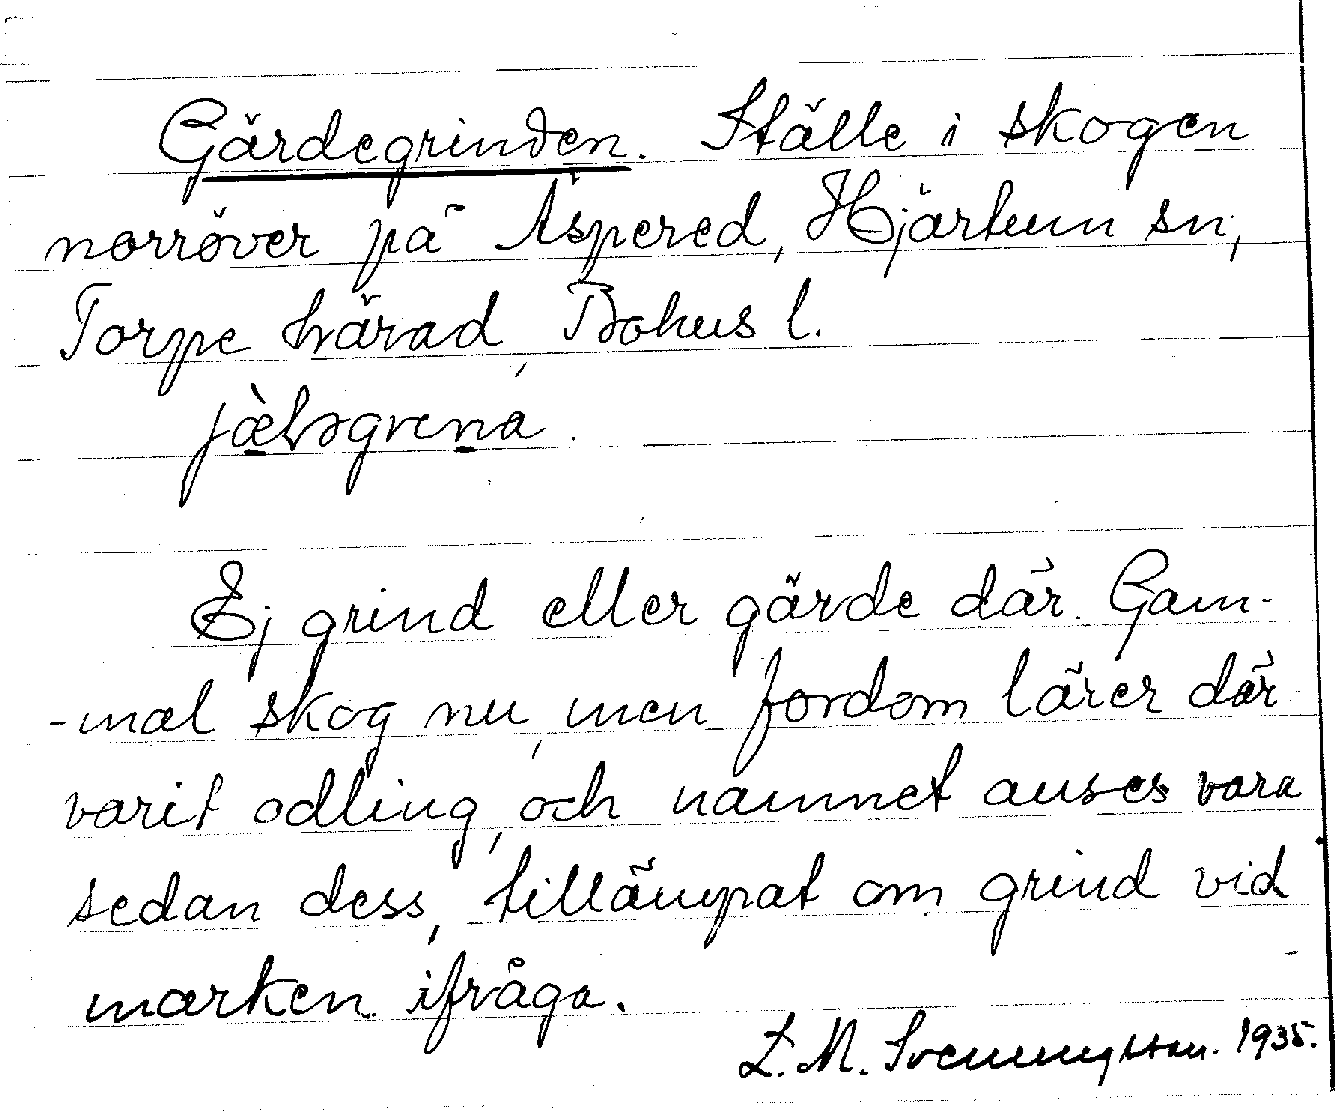 Gärdegrinden. Ställe i skogen
norröver på Äspered, Hjärtum sn,
Torpe härad, Bohus l.
Ej grind eller gärde där. Gam-
-mal skog nu, men fordom lärer där
varit odling, och namnet anses vara
sedan dess, tillämpat om grind vid
marken ifråga.
L. M. Svenungsson. 1935.